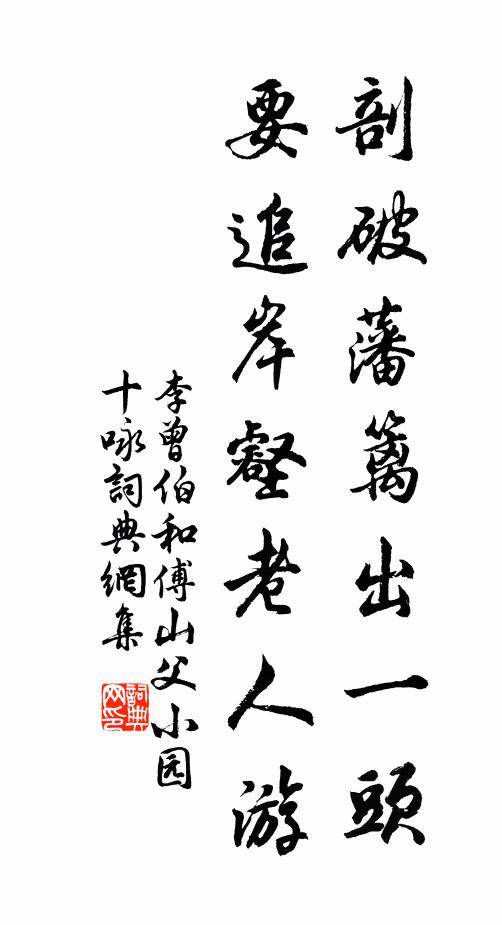 剖破藩籬出一頭
要追岸壑老人游
李曾伯和傅山父小园
十咏詞典網集
詞典网印